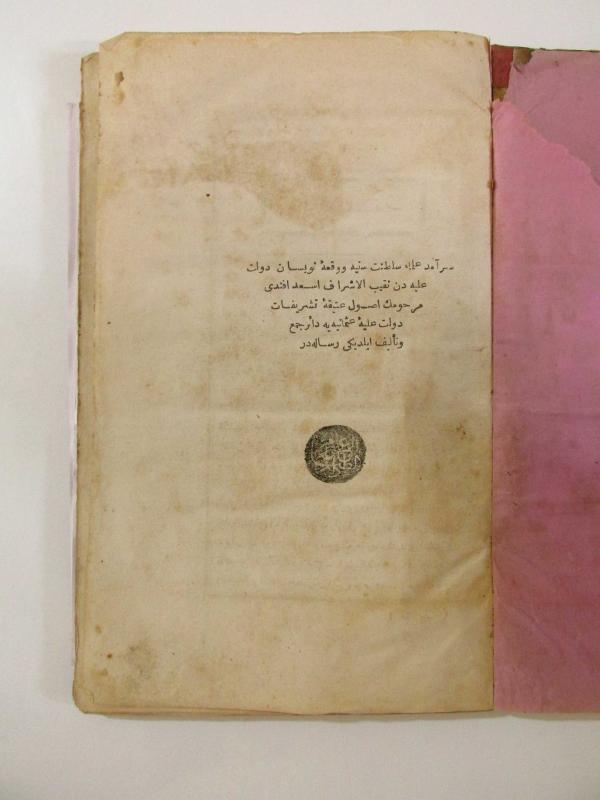 سرآمد علماء سلطنت سنیه ووقعهٔ نویسان دولت
علیه دن نقیب الاشراف اسعد افندی
مرحومك اصول عتیقهٔ تشریفات
دولت علیهٔ عثمانیه یه دائر جمع
وتألیف ایلدیکی رساله در